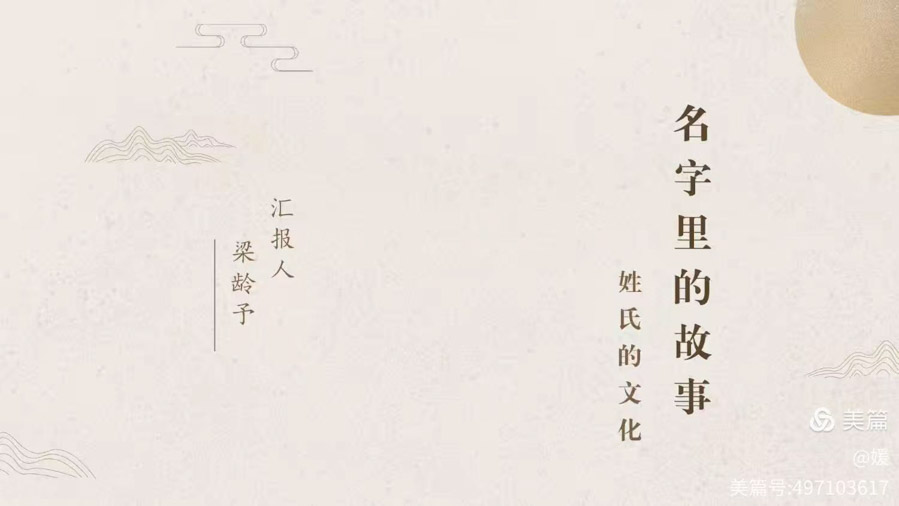 名字里的故事
姓氏的文化
汇报人
梁龄予
美篇
@媛
美篇号:497103617